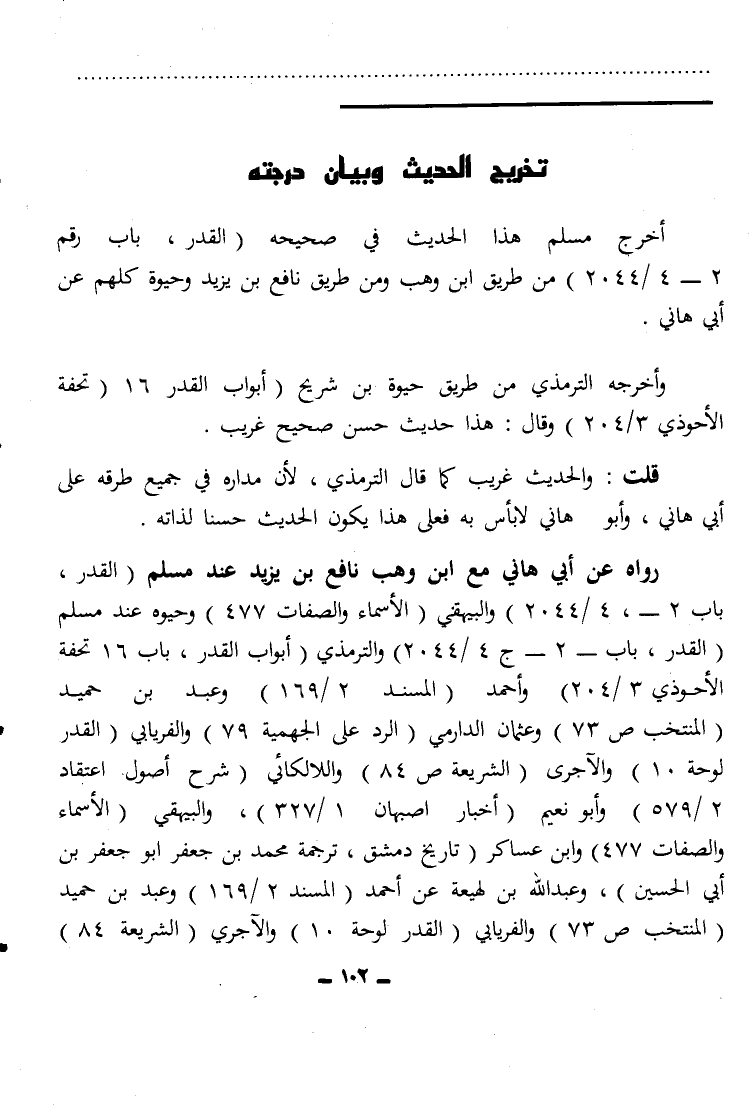 تخريج الحديث وبيان درجته
أخرج مسلم هذا الحديث في صحيحه ( القدر ، باب رقم
٢ ــ ٤ /٢٠٤٤ ) من طريق ابن وهب ومن طريق نافع بن يزيد وحيوة كلهم عن
أبي هاني .
وأخرجه الترمذي من طريق حيوة بن شريح ( أبواب القدر ١٦ ( تحفة
الأحوذي ٢٠٤/٣ ) وقال : هذا حديث حسن صحيح غريب .
قلت : والحديث غريب كما قال الترمذي ، لأن مداره في جميع طرقه على
أبي هاني ، وأبو هاني لابأس به فعلى هذا يكون الحديث حسنا لذاته .
رواه عن أبي هاني مع ابن وهب نافع بن يزيد عند مسلم ( القدر ،
باب ٢ ــ ، ٤ /٢٠٤٤ ) والبيهقي ( الأسماء والصفات ٤٧٧ ) وحيوه عند مسلم
( القدر ، باب ــ ٢ ــ ج ٤ /٢٠٤٤) والترمذي ( أبواب القدر ، باب ١٦ تحفة
الأحوذي ٣ /٢٠٤) وأحمد ( المسند ٢ /١٦٩ ) وعبد بن حميد
( المنتخب ص ٧٣ ) وعثمان الدارمي ( الرد على الجهمية ٧٩ ) والفريابي ( القدر
لوحة ١٠ ) والآجرى ( الشريعة ص ٨٤ ) واللالكائي ( شرح أصول اعتقاد
٢ /٥٧٩ ) وأبو نعيم ( أخبار اصبهان ١ /٣٢٧ ) ، والبيهقي ( الأسماء
والصفات ٤٧٧) وابن عساكر ( تاريخ دمشق ، ترجمة محمد بن جعفر ابو جعفر بن
أبي الحسين ) ، وعبدالله بن لهيعة عن أحمد ( المسند ٢ /١٦٩ ) وعبد بن حميد
( المنتخب ص ٧٣ ) والفريابي ( القدر لوحة ١٠ ) والآجري ( الشريعة ٨٤ )
ــ ١٠٢ ــ